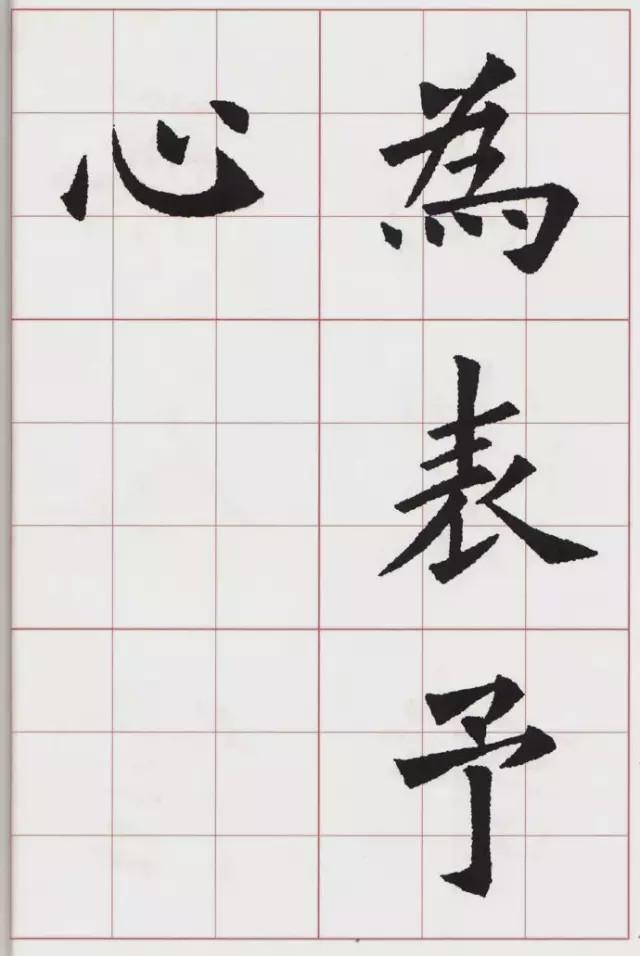 為表予
心